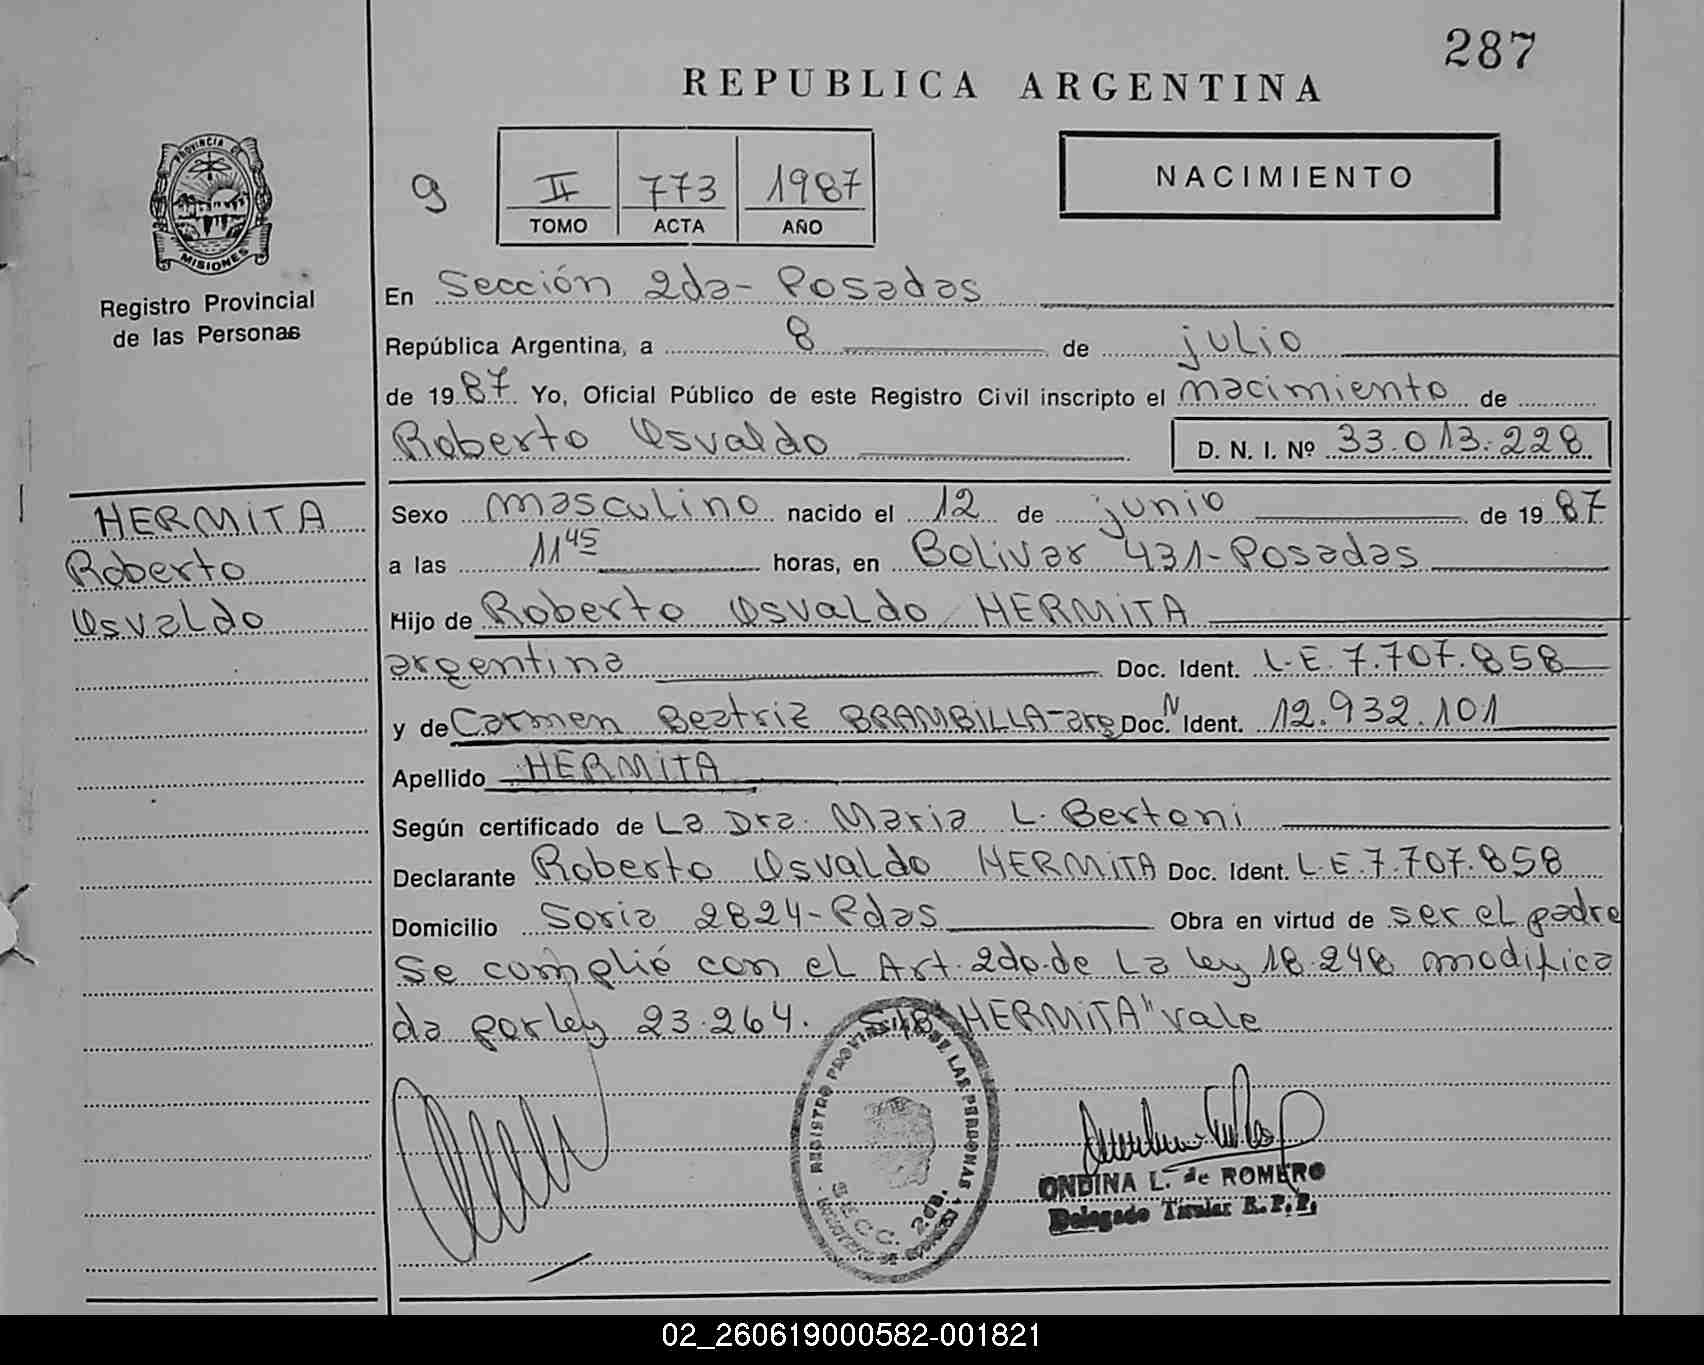 287
REPUBLICA ARGENTINA
PROVINCIA DE
MISIONES
Registro Provincial
de las Personas
9
II 773 1987
TOMO ACTA AÑO
NACIMIENTO
En Sección 2da- Posadas
República Argentina, a 8 de julio
de 1987 Yo, Oficial Público de este Registro Civil inscripto el nacimiento de
Roberto Osvaldo D. N. I. Nº 33.013.228
HERMITA
Roberto
Osvaldo
Sexo masculino nacido el 12 de junio de 1987
a las 11 45 horas, en Bolivar 431-Posadas
Hijo de Roberto Osvaldo HERMITA
argentina Doc. Ident. L.E.7.707.858
y de Carmen Beatriz BRAMBILLA-arg Doc. N Ident. 12.932.101
Apellido HERMITA
Según certificado de La Dra. Maria L. Bertoni
Declarante Roberto Osvaldo HERMITA Doc. Ident. L.E.7.707.858
Domicilio Soria 2824-Pdas Obra en virtud de ser el padre
Se complió con el Art. 2do.de La ley 18.248 modifica
da por ley 23.264. S/B "HERMITA" vale
REGISTRO PROVINCIAL DE LAS PERSONAS
SECC. 2da.
ONDINA L. de ROMERO
Delegado Titular R.P.P.
02_260619000582-001821